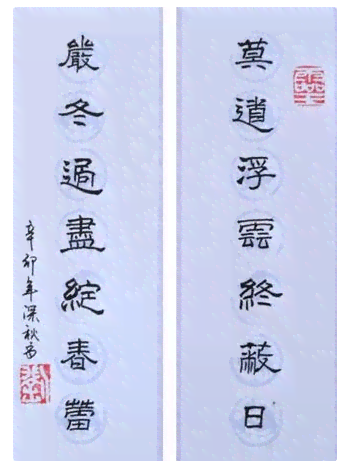 莫道浮雲終蔽日
嚴冬過盡綻春蕾
辛卯年深秋